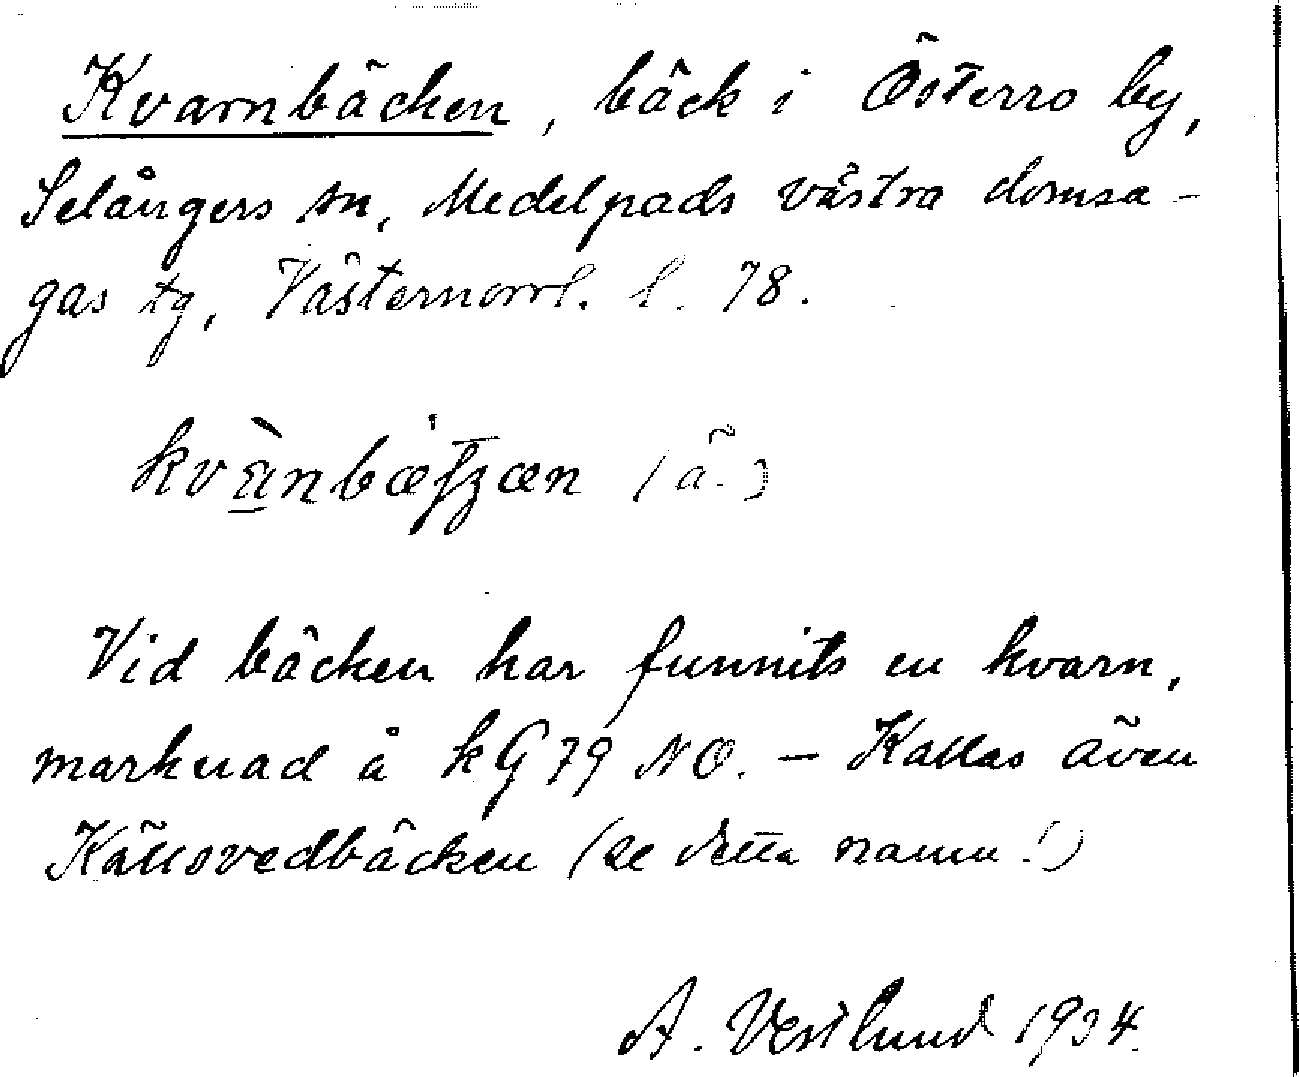 Kvarnbäcken, bäck i Österro by,
Selångers sn, Medelpads västra domsa-
gas tg, Västernorrl. l. 78.
(ä.)
Vid bäcken har funnits en kvarn,
marknad å kG 79 NO. – Kallas även
Källsvedbäcken (se detta namn!)
A. Vestlund 1934.